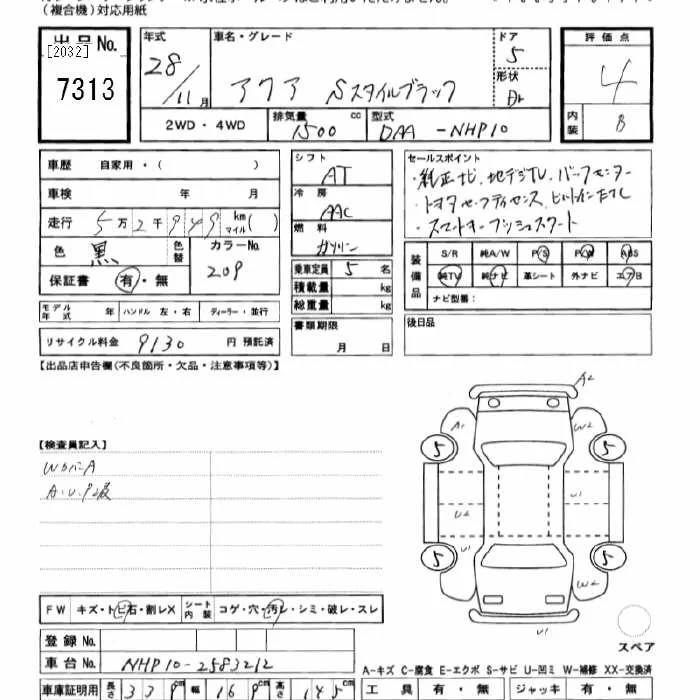 （複合機）対応用紙
出品No.
[2032]
7313
年式
28/11月
車名・グレード
アクア Sスタイルブラック
ドア
5
形状
評価点
4
内装
B
2WD・4WD
排気量
1500 cc
型式
DAA-NHP10
車歴 自家用・( )
車検 年 月
走行 5万2千949 km マイル( )
色 黒 色替
カラーNo.
209
保証書 有・無
シフト
AT
冷房
AAC
燃料
ガソリン
乗車定員 5 名
積載量 kg
総重量 kg
書類期限
月 日
セールスポイント
・純正ナビ、地デジTV、バックモニター
・トヨタセーフティセンス、ビルトインETC
・スマートキープッシュスタート
装備品
S/R 純A/W P/S P/W ABS
純TV 純ナビ 革シート 外ナビ エアB
ナビ型番：
後日品
モデル年式 年 ハンドル 左・右 ディーラー・並行
リサイクル料金 9130 円 預託済
【出品店申告欄(不良箇所・欠品・注意事項等)】
【検査員記入】
A・U・P2段
A2
A1
W2
5
5
U1
U2
5
5
U1
W2
U1
スペア
FW キズ・トビ石・割レX
シート内装 コゲ・穴・汚レ・シミ・破レ・スレ
登録No.
車台No. NHP10-2583212
A-キズ C-腐食 E-エクボ S-サビ U-凹ミ W-補修 XX-交換済
車庫証明用 長さ 339cm 幅 169cm 高さ 145cm
工具 有・無 ジャッキ 有・無